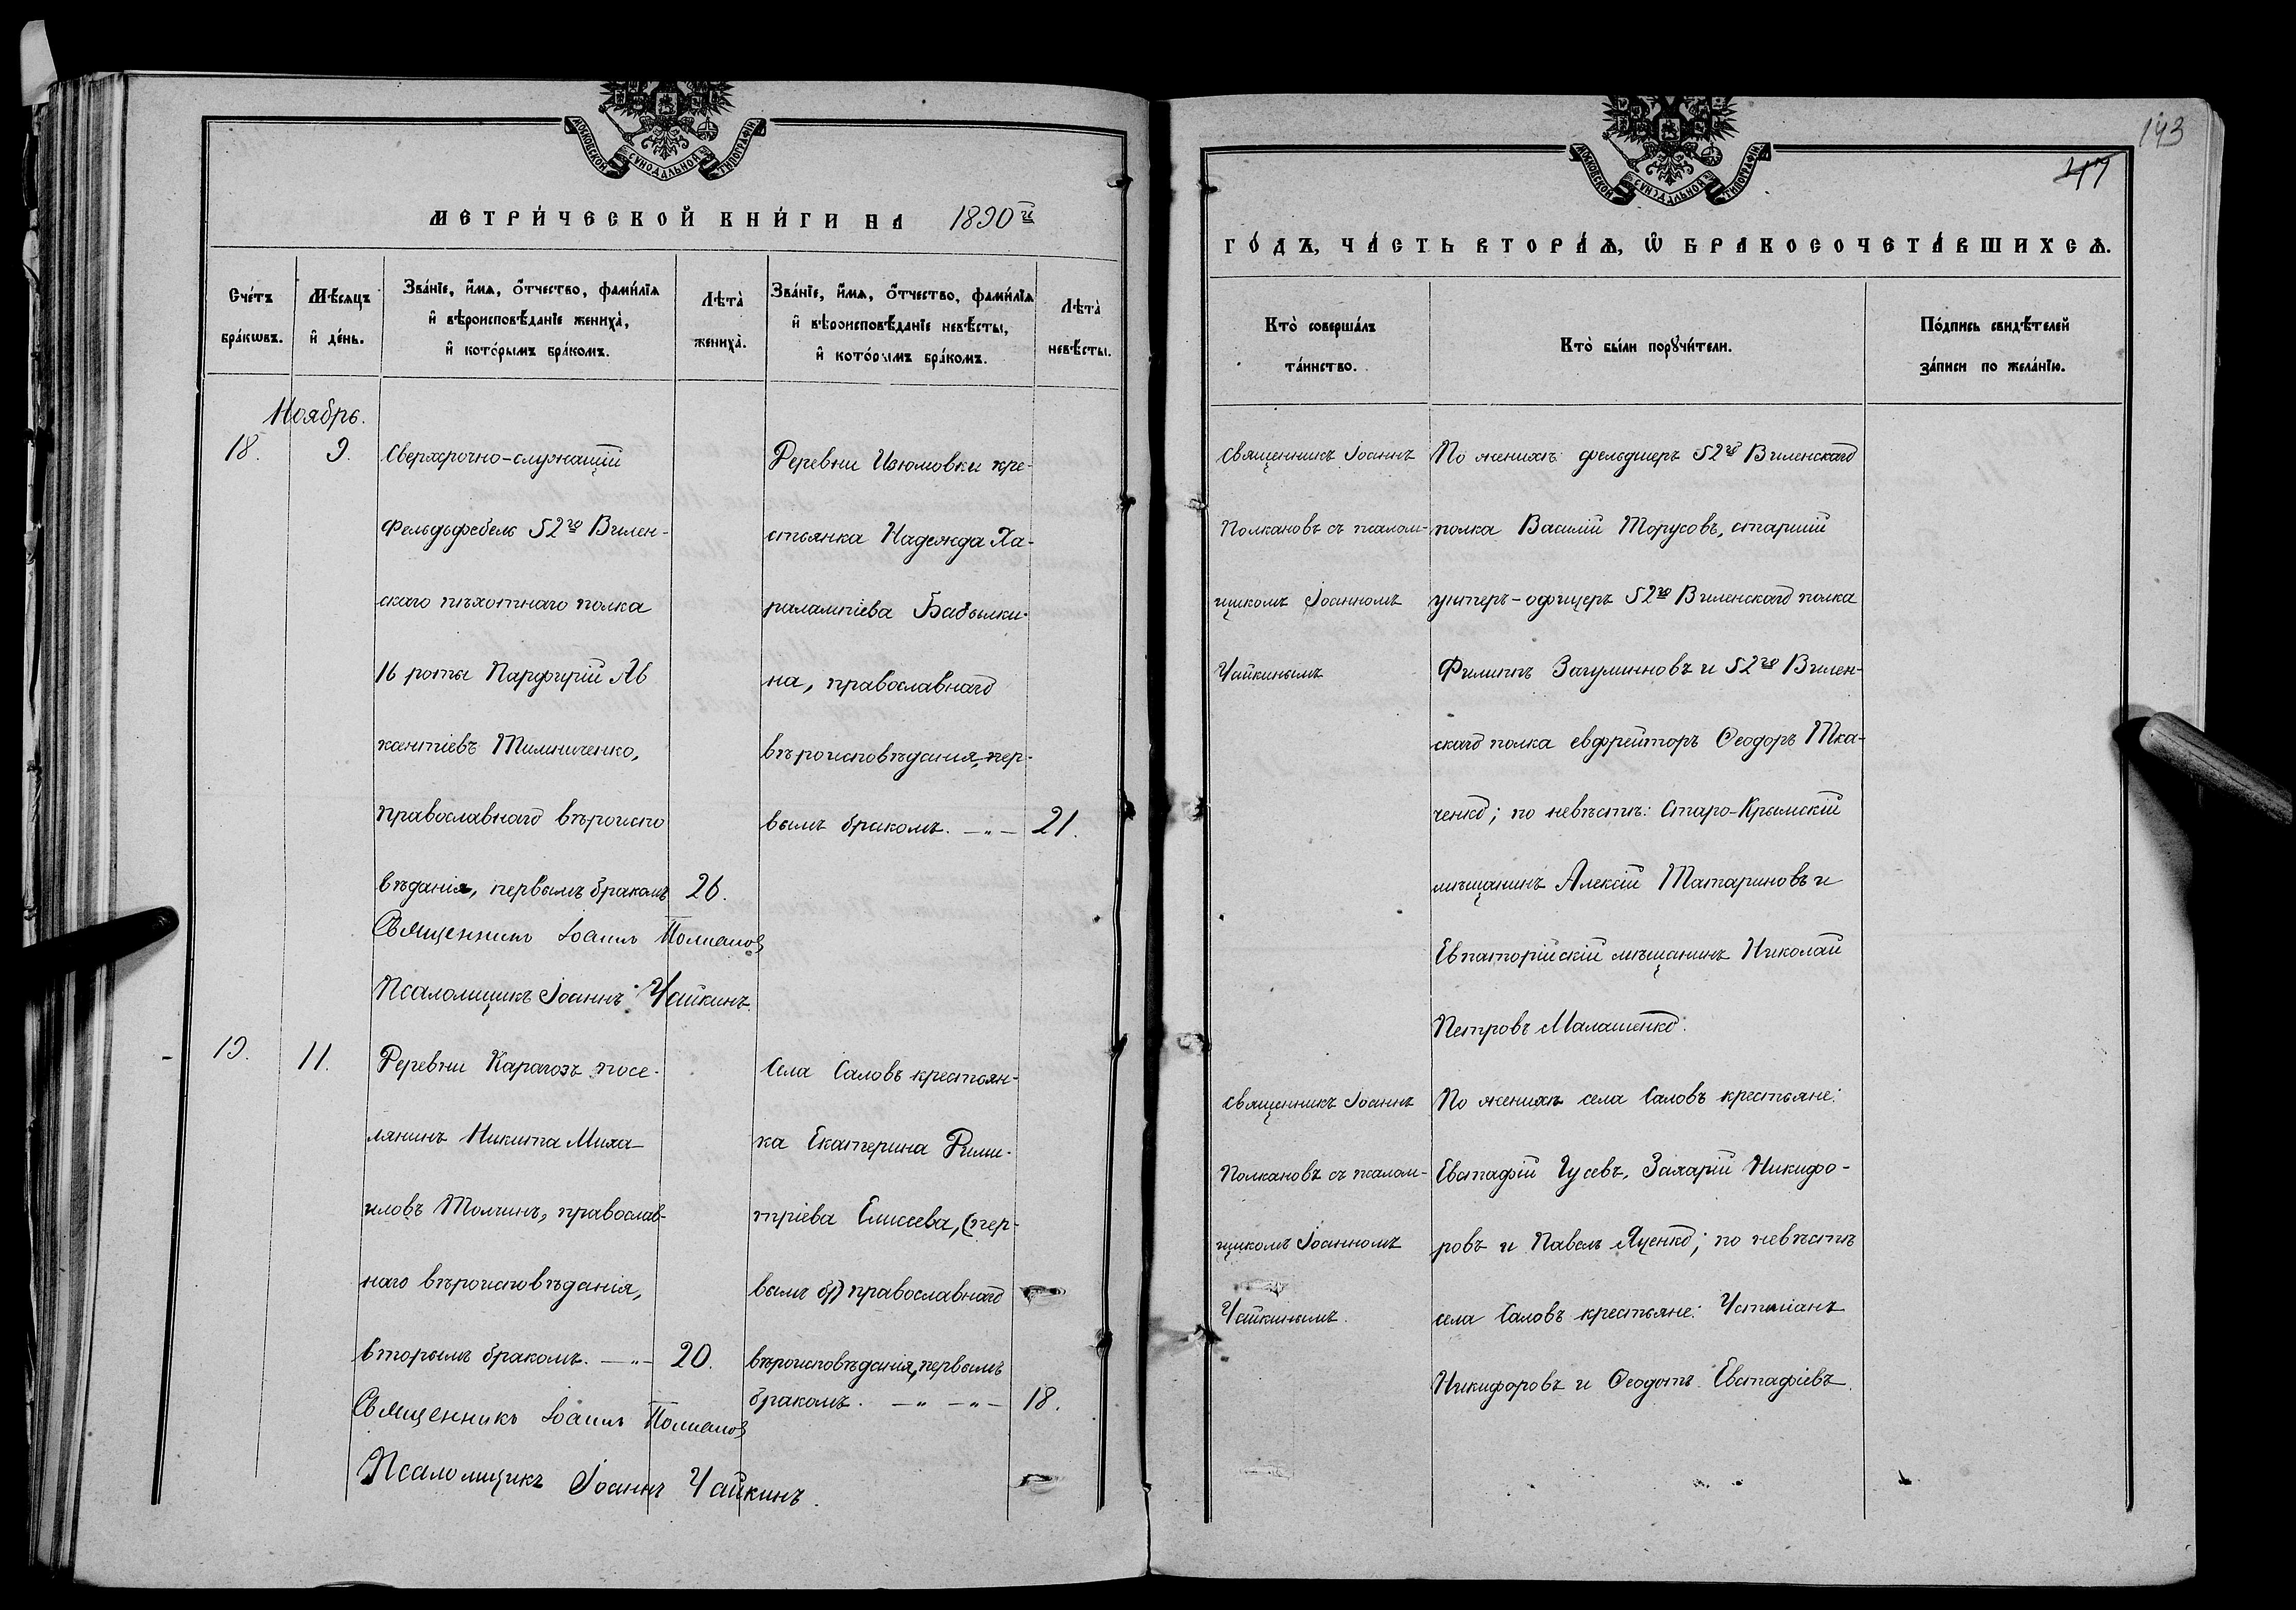 МОСКОВСКОЙ СѴНОДАЛЬНОЙ ТИПОГРАФІИ
МЕТРИЧЕСКОЙ КНИГИ НА 1890й
Счетъ браковъ.
Мѣсяцъ и день.
Званіе, имя, отчество, фамилія
и вѣроисповѣданіе жениха,
и которымъ бракомъ.
Лѣта
жениха.
Званіе, имя, отчество, фамилія
и вѣроисповѣданіе невѣсты,
и которымъ бракомъ.
Лѣта
невѣсты.
Ноябрь.
18. 9.
Сверхсрочно-служащій
Фельдфебель 52го Вилен-
скаго пѣхотнаго полка
16 роты Парфирій Ав
ксентіевъ Тимниченко,
православнаго вѣроиспо
вѣданія, первымъ бракомъ 26.
Деревни Изюмовки кре-
стьянка Надежда Ха-
ралампіева Бабылки-
на, православнаго
вѣроисповѣданія, пер-
вымъ бракомъ. —„— 21.
Священникъ Іоаннъ Полкановъ
Псаломщикъ Іоаннъ Чайкинъ.
19. 11.
Деревни Карагозъ посе-
лянинъ Никита Миха-
иловъ Толчинъ, православ-
наго вѣроисповѣданія,
вторымъ бракомъ. —„— 20.
Села Саловъ крестьян-
ка Екатерина Дими-
тріева Елисеева, (пер-
вымъ бр) православнаго
вѣроисповѣданія, первымъ
бракомъ. —„—„— 18.
Священникъ Іоаннъ Полкановъ
Псаломщикъ Іоаннъ Чайкинъ.
143
47
МОСКОВСКОЙ СѴНОДАЛЬНОЙ ТИПОГРАФІИ
ГОДЪ, ЧАСТЬ ВТОРАЯ, Ѡ БРАКОСОЧЕТАВШИХСЯ.
Кто совершалъ
таинство.
Кто были поручители.
Подпись свидѣтелей
записи по желанію.
Священникъ Іоаннъ
Полкановъ съ псалом-
щикомъ Іоанномъ
Чайкинымъ
По женихѣ фельдшеръ 52го Виленскаго
полка Василій Торусовъ, старшій
унтеръ-офицеръ 52го Виленскаго полка
Филиппъ Загуминновъ и 52го Вилен-
скаго полка евфрейторъ Ѳеодоръ Тка-
ченко; по невѣстѣ: Старо-Крымскій
мѣщанинъ Алексій Татариновъ и
Евпаторійскій мѣщанинъ Николай
Петровъ Малашенко.
Священникъ Іоаннъ
Полкановъ съ псалом-
щикомъ Іоанномъ
Чайкинымъ.
По женихѣ села Саловъ крестьяне:
Евстафій Гусевъ, Захарій Никифо-
ровъ и Павелъ Яценко; по невѣстѣ
села Саловъ крестьяне: Устиніанъ
Никифоровъ и Ѳеодотъ Евстафіевъ.